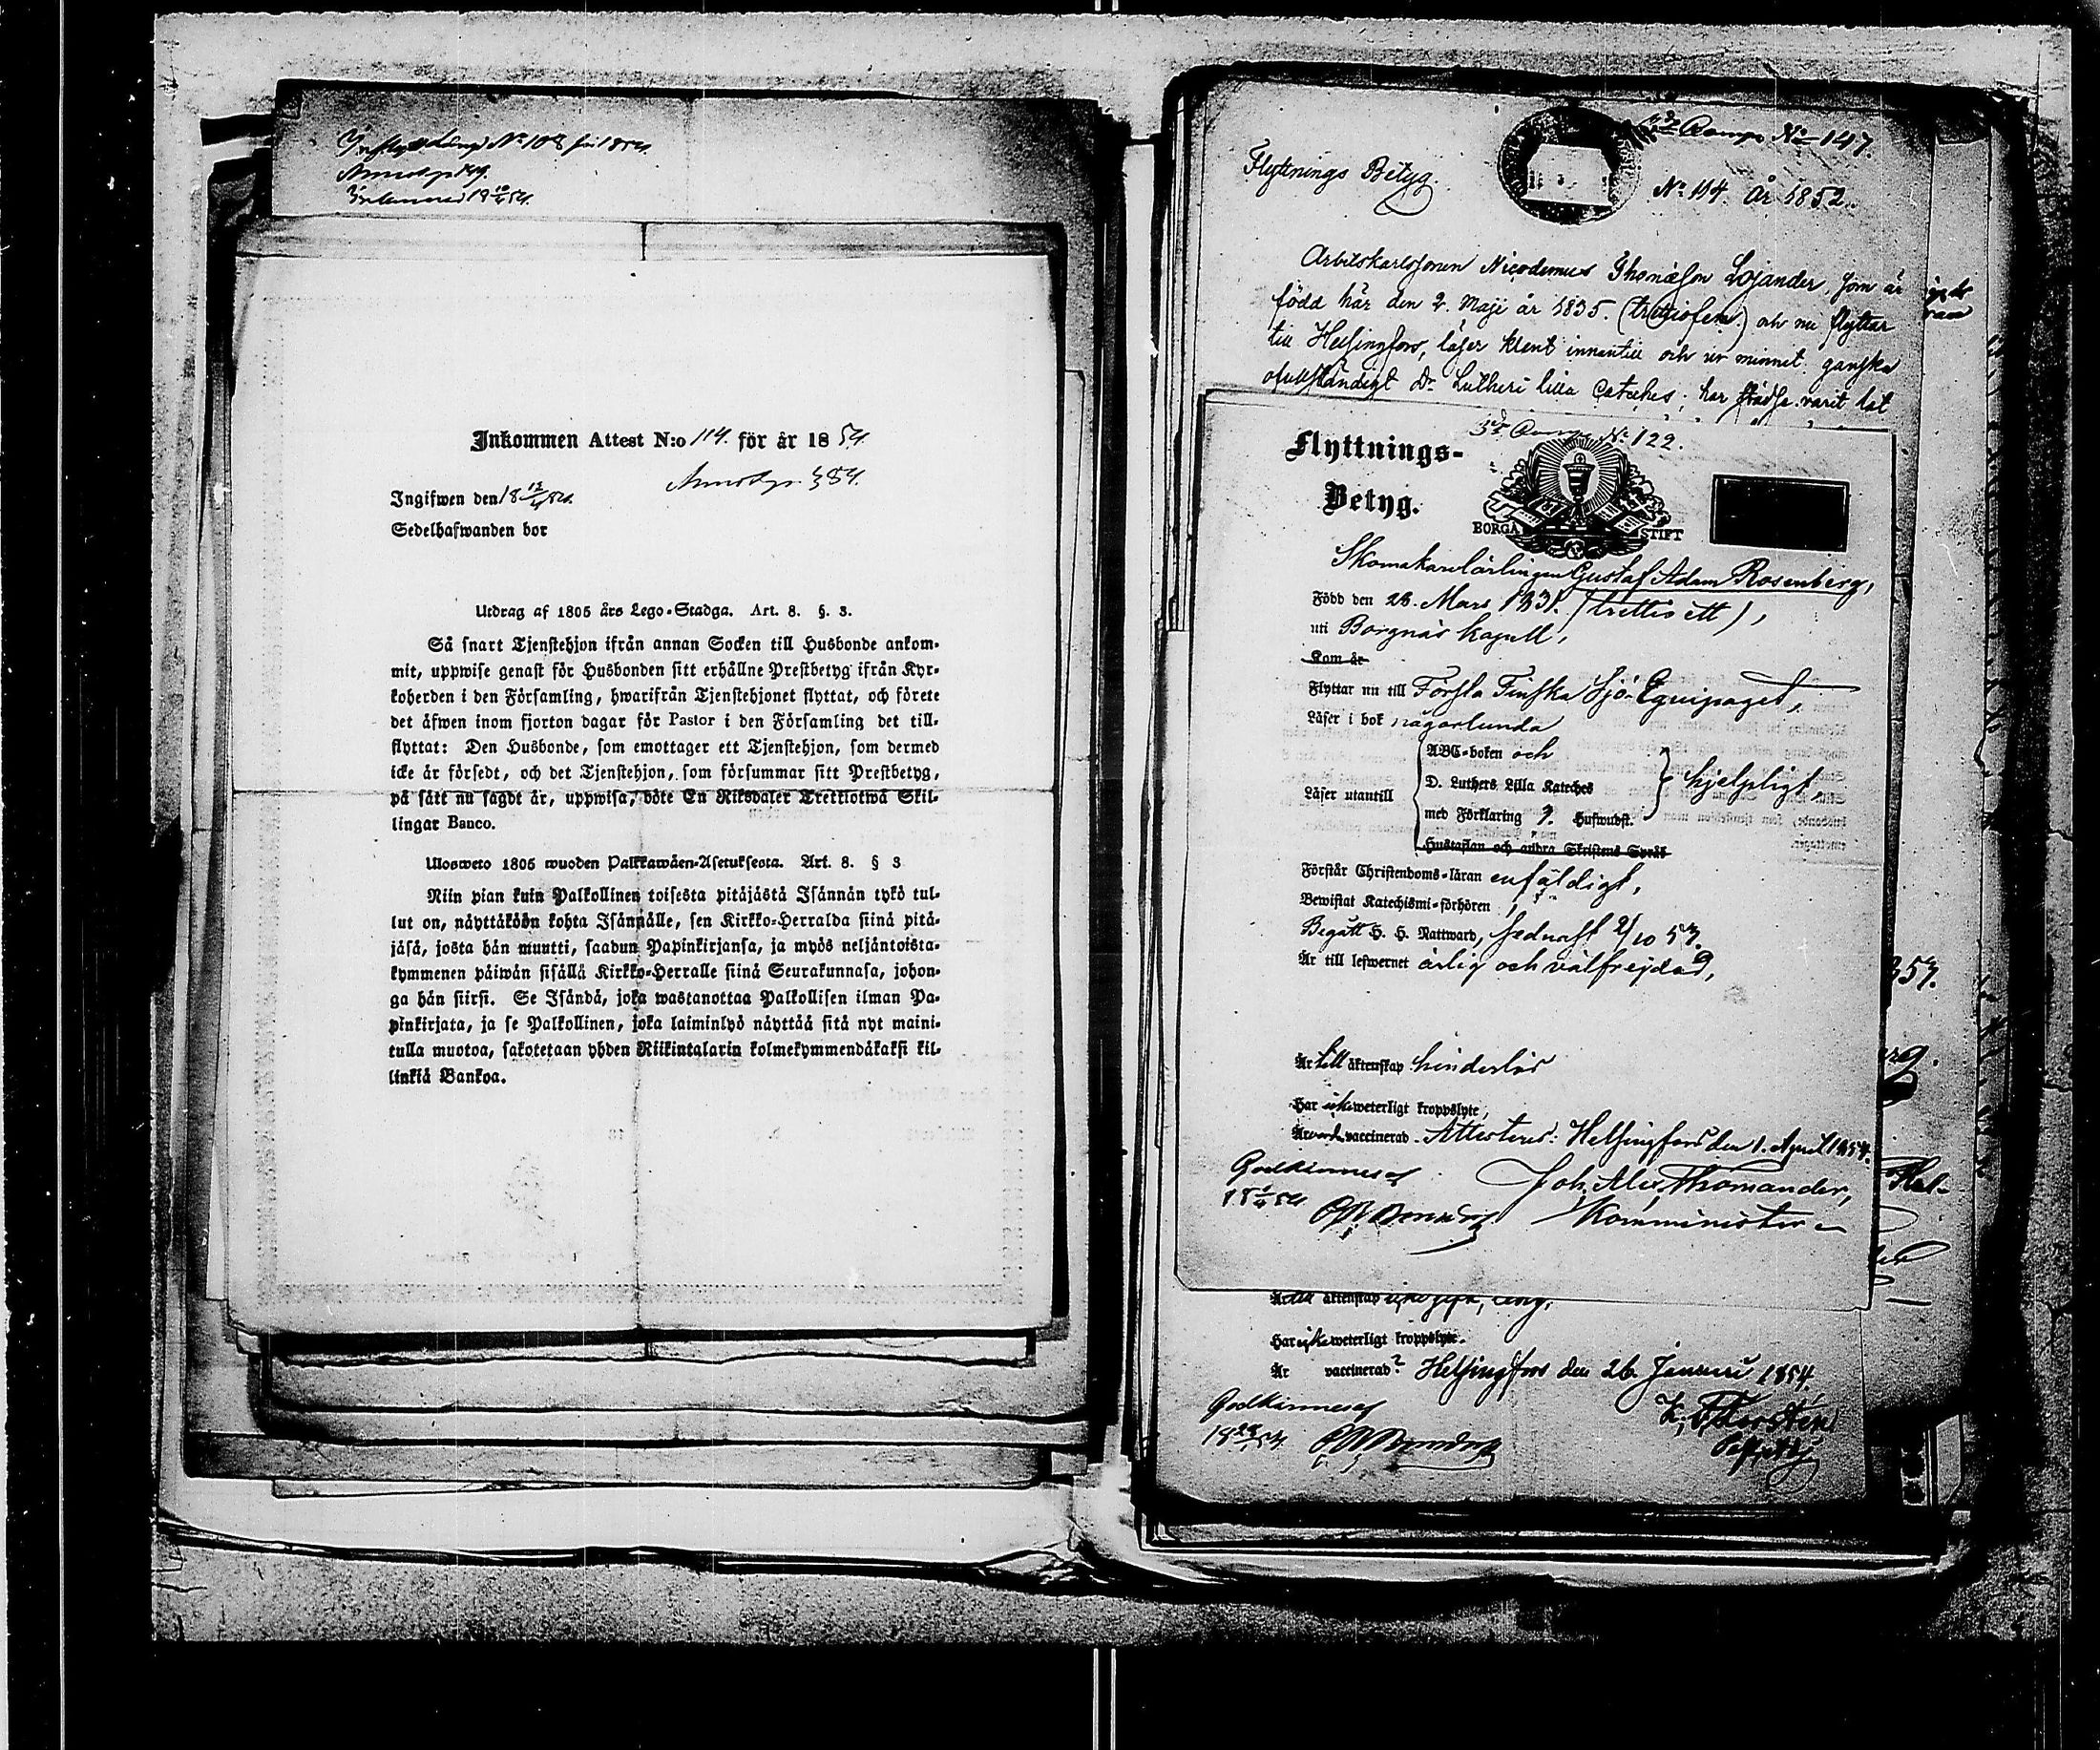 Inflyttnings N:o 108 för 1854.
Inkommen Attest N:o 114. för år 1854.
Ingifwen den 18 12/4 54.
Sedelhafwanden bor
Utdrag af 1805 års Lego-Stadga. Art. 8. §. 3.
Så snart Tjenstehjon ifrån annan Socken till Husbonde ankom-
mit, uppwise genast för Husbonden sitt erhållne Prestbetyg ifrån Kyr-
koherden i den Församling, hwarifrån Tjenstehjonet flyttat, och förete
det äfwen inom fjorton dagar för Pastor i den Församling det till-
flyttat: Den Husbonde, som emottager ett Tjenstehjon, som dermed
icke är försedt, och det Tjenstehjon, som försummar sitt Prestbetyg,
på sätt nu sagdt är, uppwisa, böte En Riksdaler Trettiotwå Skil-
lingar Banco.
Ulosweto 1805 wuoden Palkkawäen-Asetuksesta. Art. 8. § 3
Niin pian kuin Palkollinen toisesta pitäjästä Isännän tykö tul-
lut on, näyttäköön kohta Isännälle, sen Kirkko-Herralda siinä pitä-
jäsä, josta hän muutti, saadun Papinkirjansa, ja myös neljäntoista-
kymmenen päiwän sisällä Kirkko-Herralle siinä Seurakunnasa, johon-
ga hän siirsi. Se Isändä, joka wastanottaa Palkollisen ilman Pa-
pinkirjata, ja se Palkollinen, joka laiminlyö näyttää sitä nyt maini-
tulla muotoa, sakotetaan yhden Riikintalarin kolmekymmendäkaksi kil-
linkiä Bankoa.
Flyttnings Betyg.
Comp. No 147.
No 114. år 1852.
Arbetskarlssonen Nicodemus Thomasson Lojander, som är
född här den 2. Maji år 1835. (trettiofem) och nu flyttar
till Helsingfors, läser klent innantill och ur minnet ganska
ofullständigt Dr Lutheri lilla Cateches; har städse varit
3dje Comp. No 122.
Flyttnings-
Betyg.
BORGÅ STIFT
Skomakarelärlingen Gustaf Adam Rosenberg,
Född den 28. Mars 1831. (trettio ett),
uti Borgnäs kapell,
Som är
Flyttar nu till Första Finska Sjö-Equipaget,
Läser i bok någorlunda
ABC-boken och
D. Luthers Lilla Kateches
Läser utantill
hjelpligt
med Förklaring Hufwudst.
Hustaflan och andra Skriftens Språk
Förstår Christendoms-läran enfäldigt,
Bewistat Katechismi-förhören
Begått H. H. Nattward, sednast 2/10 53.
Är till lefwernet ärlig och välfrejdad,
Är till äktenskap hinderlös
Har icke weterligt kroppslyte,
Är vaccinerad. Attesteras: Helsingfors den 1. April 1854.
Godkännes af
18 1/4 54
Joh. Alex. Thomander,
Komminister
Har icke weterligt kroppslyte.
Är vaccinerad? Helsingfors den 26 Januari 1854.
Godkännes af